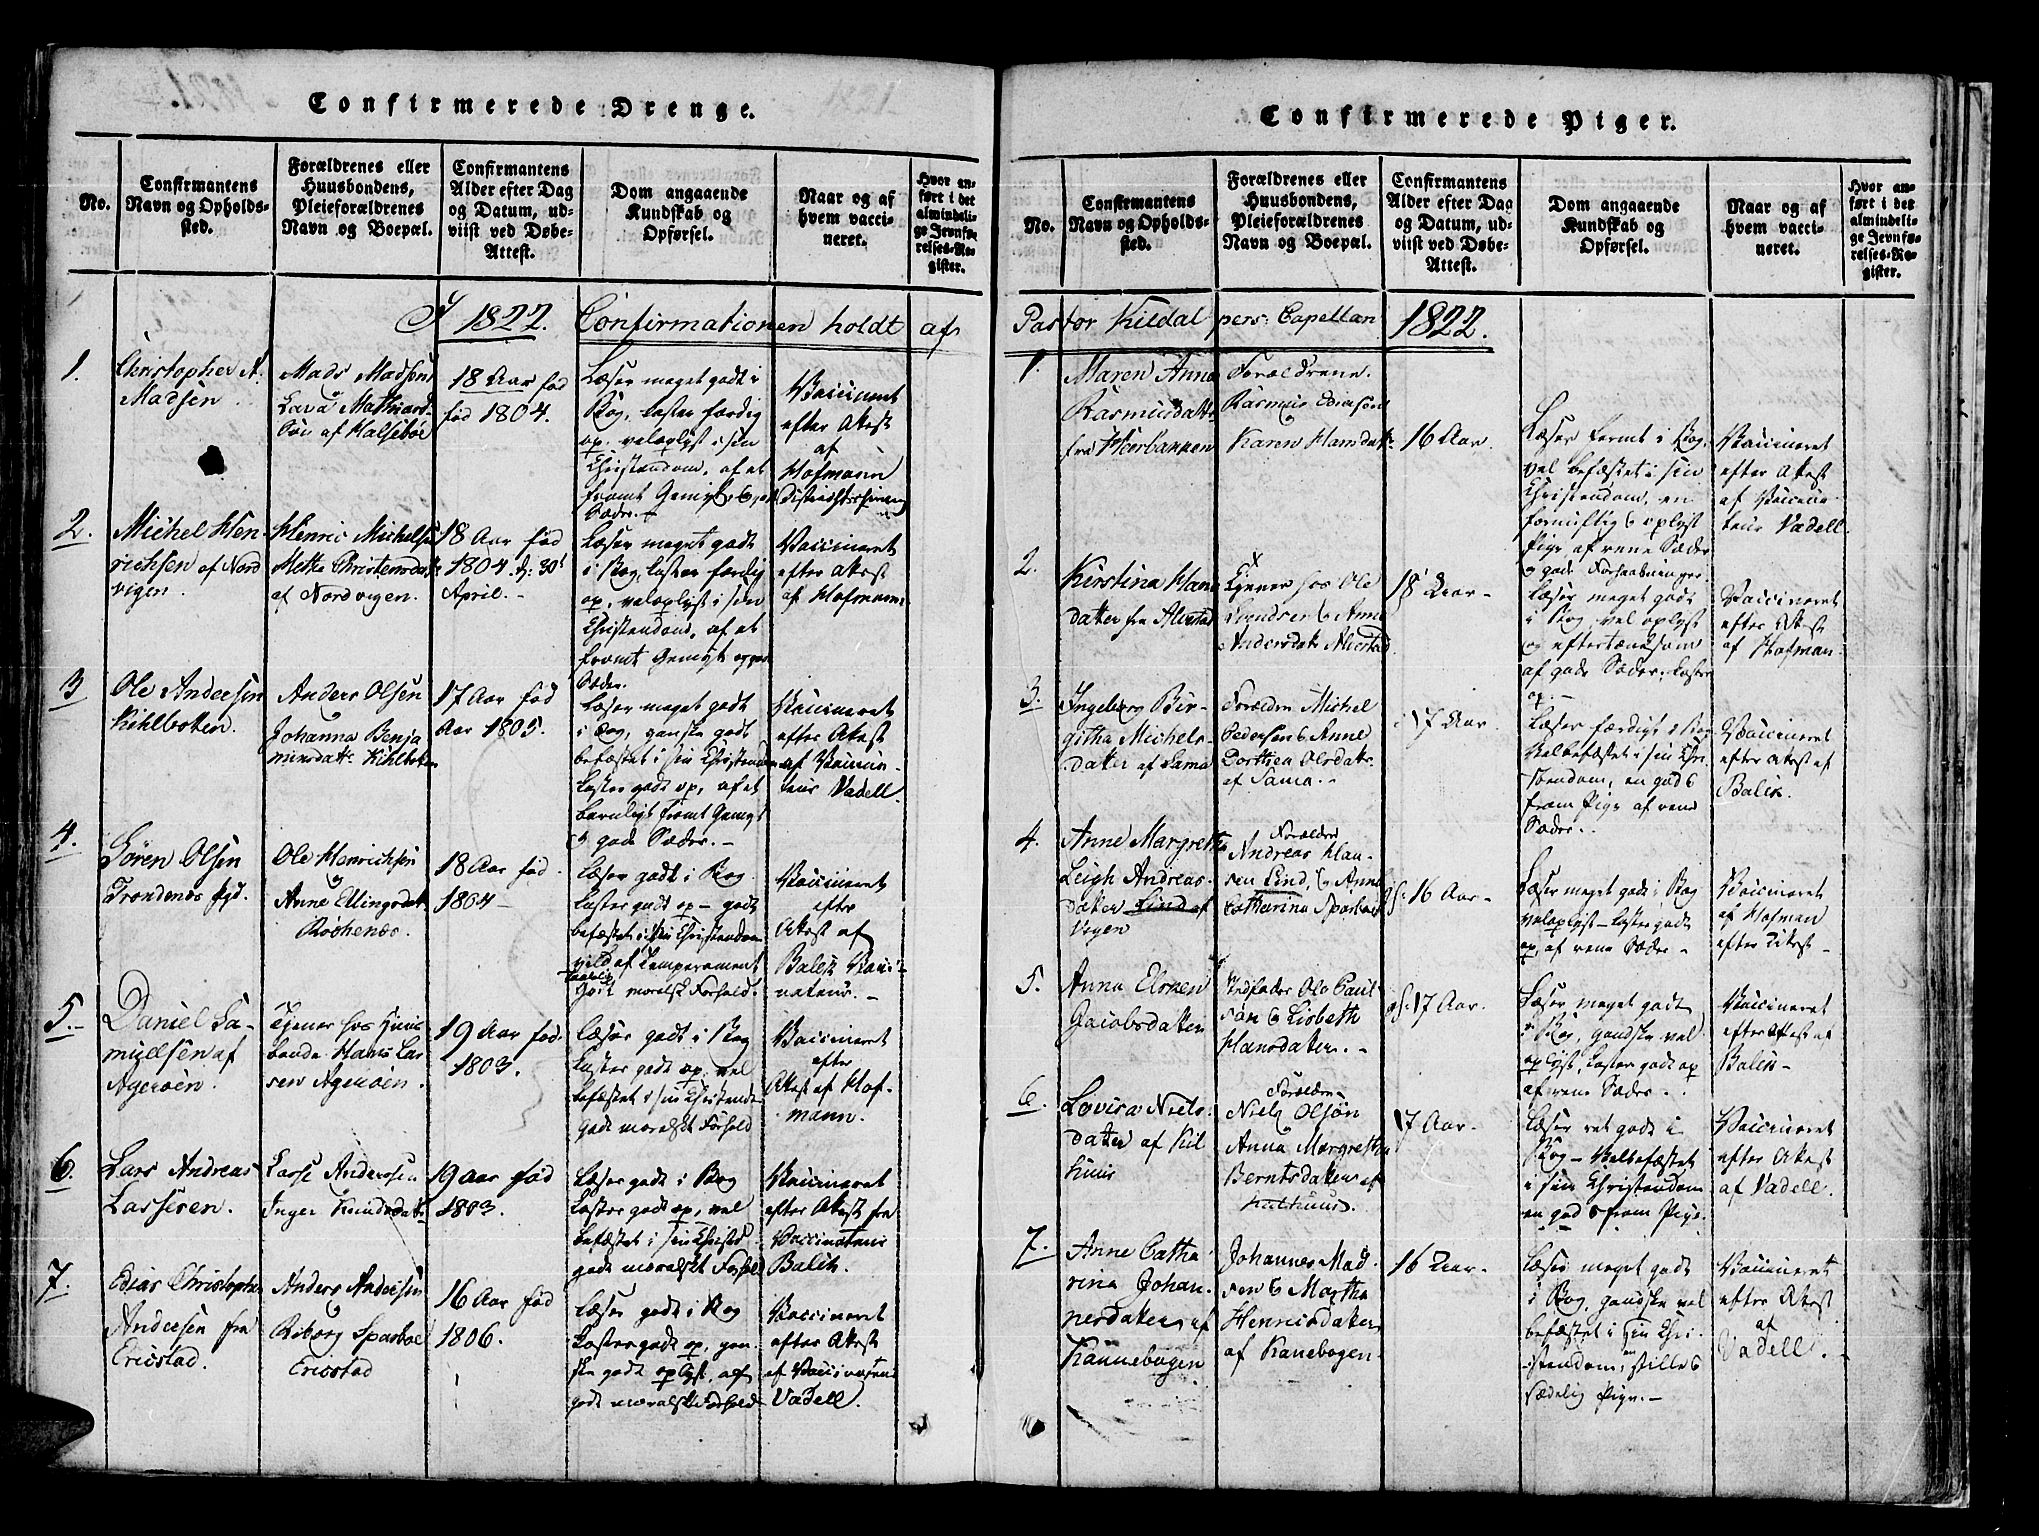 Confirmerede Drenge.
No.
Confirmantens
Navn og Opholds-
sted.
Forældrenes eller
Huusbondens,
Pleieforældrenes
Navn og Boepæl.
Confirmantens
Alder efter Dag
og Datum, ud-
viist ved Døbe-
Attest.
Dom angaaende
Kundskab og
Opførsel.
Naar og af
hvem vacci-
neret.
Hvor an-
ført i det
almindeli-
ge Jevnfø-
relses-Re-
gister.
1822. Confirmationen holdt af
1.
Christopher A.
Madsen
Mads Madsen
18 Aar fød
fød 1804.
Læser meget godt i
Bog, laster færdig
op, veloplyst i sin
Christendom, af et
fromt Gemyt
Sæder.-
Vaccineret
efter Atest
af
Hofmann
2.
Michel Hen
richsen af Nord
vigen.
Henric Michelsen
Mette Christensdatt:
af Nordvigen.
18 Aar fød
1804. d: 30'
April.-
Læser meget godt
i Bog, laster færdig
op, veloplyst i sin
Christendom, af et
fromt Gemyt og gode
Sæder.
Vaccineret
efter Atest
af Hofmann.
3
Ole Andersen
Kihlbotten.
Anders Olsen
Johanna Benja
minsdatt: Kihlboten
17 Aar fød
Aar 1805.
Læser meget godt
i Bog, ganske godt
befæstet i sin Christendom
laster godt op, af et
barnligt fromt Gemyt
og gode Sæder.-
Vaccineret
efter Atest
af Vaccina-
teur Vadell.
4.
Sören Olsen
Trondenæs Pgd.
Ole Henrichsen
og
Anne Ellingsdat:
18 Aar fød.
1804-
Læser godt i Bog
laster godt op- godt
befæstet i sin Christendom
vild af Temperament
Godt moralsk Forhold.
Vaccineret
efter
Atest af
Balch Vacci-
nateur.-
5.-
Daniel Sa-
muelsen af
Ageröen.
Tjener hos Huus
bonde Hans Lar
sen Ageröen.
19 Aar fød
1803.
Læser godt i Bog
laster godt op, vel
befæstet i sin Christendom
godt moralskt Forhold
Vaccineret
efter
Atest af Hof-
mann.
6.
Lars Andreas
Larssen.
Larse Anderssen
Inger Knudsdatt:
19 Aar fød
1803.
Læser godt i Bog
laster godt op, vel
befæstet i sin Christd
godt moralskt Forhold
Vaccineret
efter Atest fra
Vaccinateur
Balch.
7.
Edias Christopher
Andersen fra
Ericstad.
Anders Andersen
Riborg Sparboe
Ericstad
16 Aar fød
1806.
Læser godt i Bog
laster godt op, gan-
ske godt oplyst, af
godt moralsk Forhold
Vaccineret
efter Atest
af Vaccinateur
Vadell.
Confirmerede Piger.
No.
Confirmantens
Navn og Opholds-
sted.
Forældrenes eller
Huusbondens,
Pleieforældrenes
Navn og Boepæl.
Confirmantens
Alder efter Dag
og Datum, ud-
viist ved Døbe-
Attest.
Dom angaaende
Kundskab og
Opførsel.
Naar og af
hvem vacci-
neret.
Hvor an-
ført i det
almindeli-
ge Jevnfø-
relses-Re-
gister.
Pastor Kildal pers: Capellan 1822.
1.
Maren Anna
Rasmusdatt:
Forældrene.
Karen Hansdatt:
16 Aar.
Læser fermt i Bog,
vel befæstet i sin
Christendom, en
fornuftig & oplyst
Pige af rene Sæder
Vaccineret
efter Atest
af Vaccina-
teur Vadell.
2.
Kirstina Hans
datter fra Alvestad
Tjener hos Ole
18 Aar-
Læser meget godt
i Bog, vel oplyst
og eftertænksom
af gode Sæder, laster
op.-
Vaccineret
efter Atest
af Hofman.
3.
Ingeborg Bir-
githa Michels-
datter af Sama
Forældre Michel
Pedersen & Anne
Dorthea Olsdatr.
af Sama.-
17 Aar
Læser færdigt i Bog
Velbefæstet i sin Chri-
stendom, en god &
from Pige af rene
Sæder.
Vaccineret
efter Atest af
Balch.
4.
Anne Margretha
Leigh Andreas-
datter Lind af
Vegen
Forældre
Andreas Han-
sen Lind, & Anne
Catharina Sparboe
16 Aar-
Læser meget godt i Bog
veloplyst- laster godt
op, af rene Sæder-
Vaccineret
af Hofman
efter Atest-
5.
Anna Elonen
Jacobsdatter
Ole Paul
sen & Lisbeth
Hansdatter.-
17 Aar.
Læser meget godt
i Bog, gandske vel
oplyst, laster godt op
af rene Sæder..
Vaccineret
efter Atest af
Balch-
6.
Lovisa Niels-
datter af Kil
huus
Forældre
Niels Olsøn
Anna Margretha
Berntsdatter af
Kilhuus.
17 Aar-
Læser ret godt i
Bog- Velbefæstet
i sin Christendom
en god & from Pige.
Vaccineret
efter Atest
af Vadell.
7.
Anne Catha
rina Johan-
nesdatter af
Kannebogen
Johannes Mad
sen & Martha
Henricsdatter
af Kanebogen.
16 Aar-
Læser meget godt
i Bog, gandske vel
befæstet i sin Chri-
stendom, en stille &
sædelig Pige.-
Vaccineret
efter Atest
af
Vadell.-